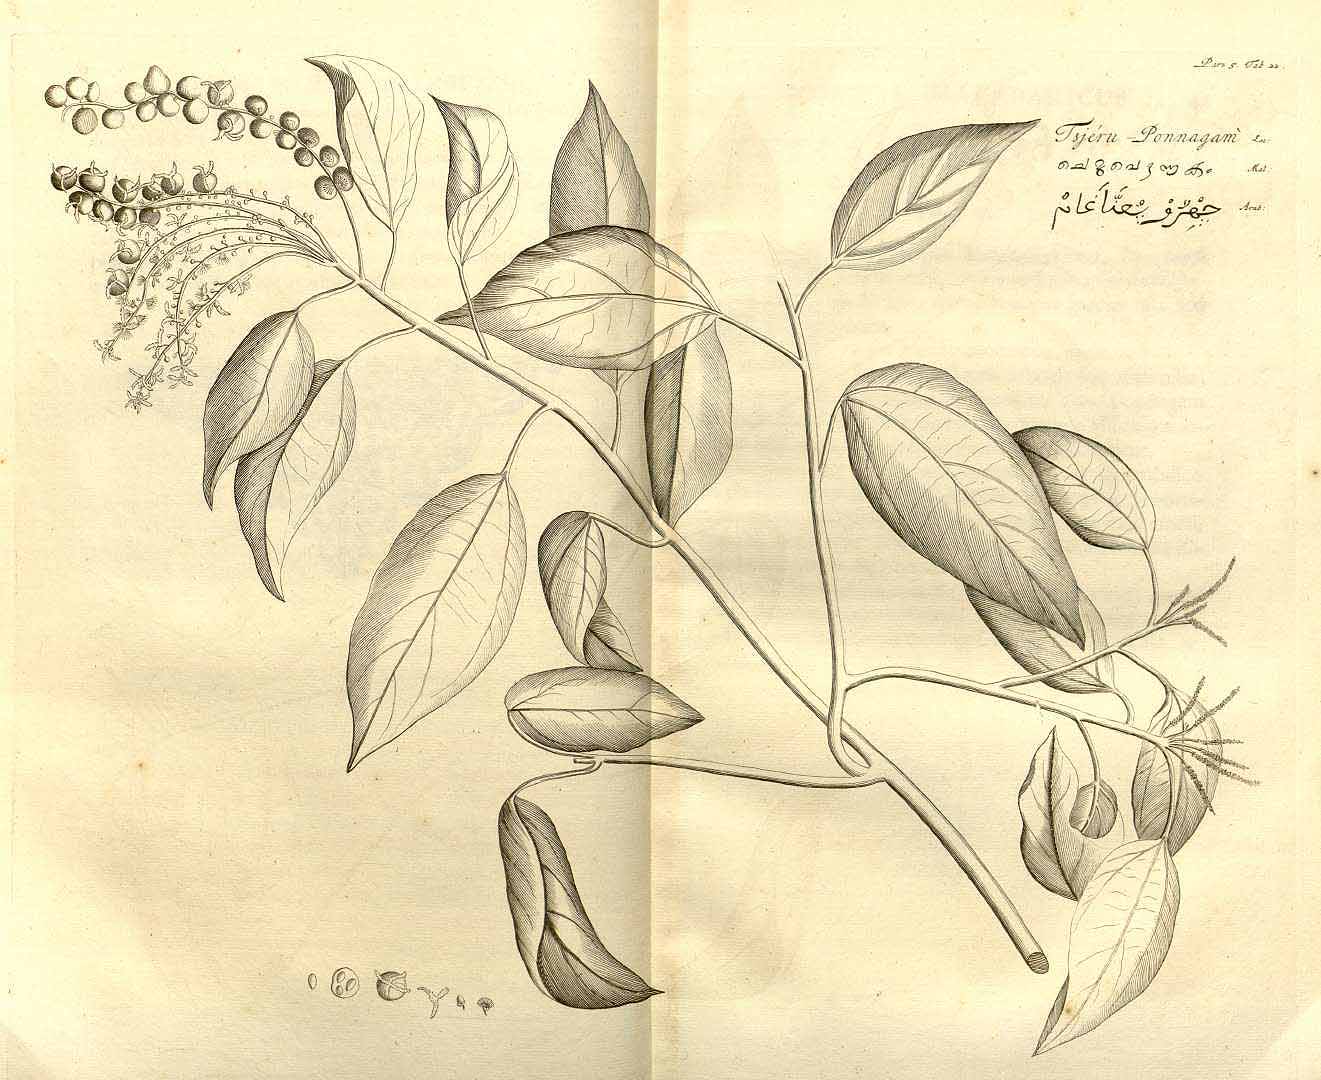 Pars 5. Tab 22.
Tsjéru - Ponnagam̀ Lat:
ചെറുപൊന്നകം Mal:
Arab: